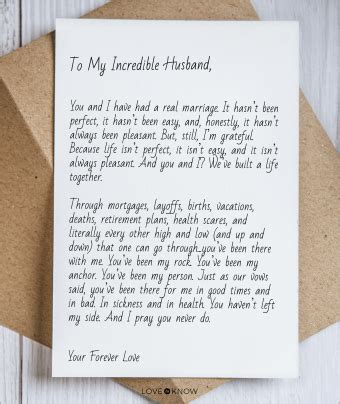 To My Incredible Husband,
You and I have had a real marriage. It hasn't been
perfect, it hasn't been easy, and, honestly, it hasn't
always been pleasant. But, still, I'm grateful.
Because life isn't perfect, it isn't easy, and it isn't
always pleasant. And you and I? We've built a life
together.
Through mortgages, layoffs, births, vacations,
deaths, retirement plans, health scares, and
literally every other high and low (and up and
down) that one can go through...you've been there
with me. You've been my rock. You've been my
anchor. You've been my person. Just as our vows
said, you've been there for me in good times and
in bad. In sickness and in health. You haven't left
my side. And I pray you never do.
Your Forever Love
LOVE to KNOW